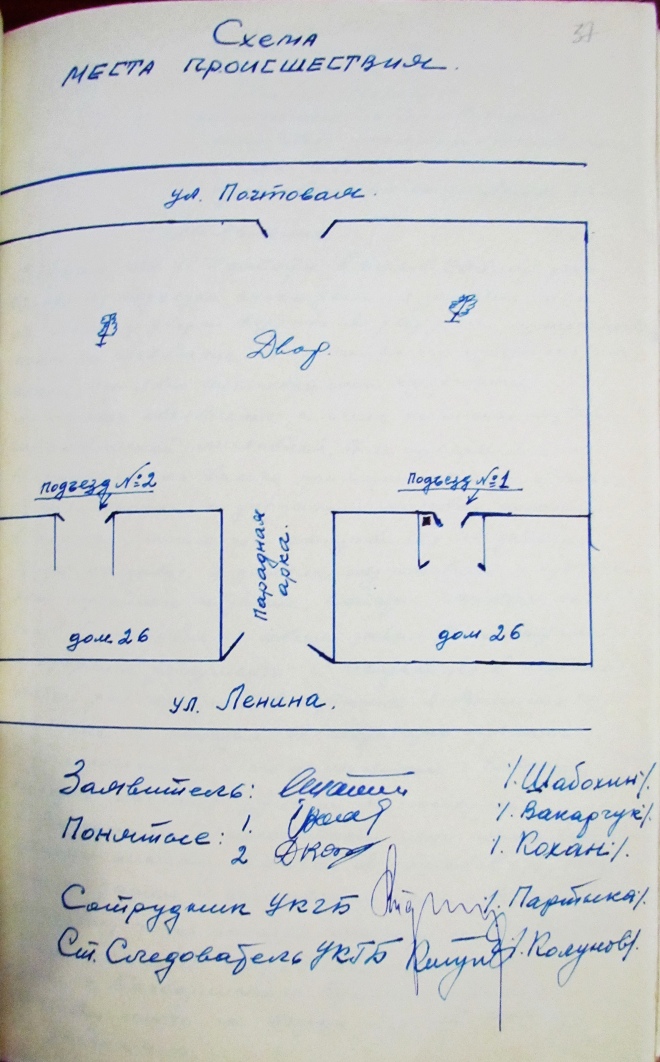 37
Схема
МЕСТА ПРОИСШЕСТВИЯ.
ул. Почтовая.
Двор.
Подъезд №2
Подъезд №1
Парадная
арка.
дом 26
дом 26
ул. Ленина.
Заявитель: /.Шабохин/.
Понятые: 1. /. Вакарчук/.
2 /. Кохан/.
Сотрудник УКГБ /. Партыка/.
Ст. Следователь УКГБ /. Колунов/.